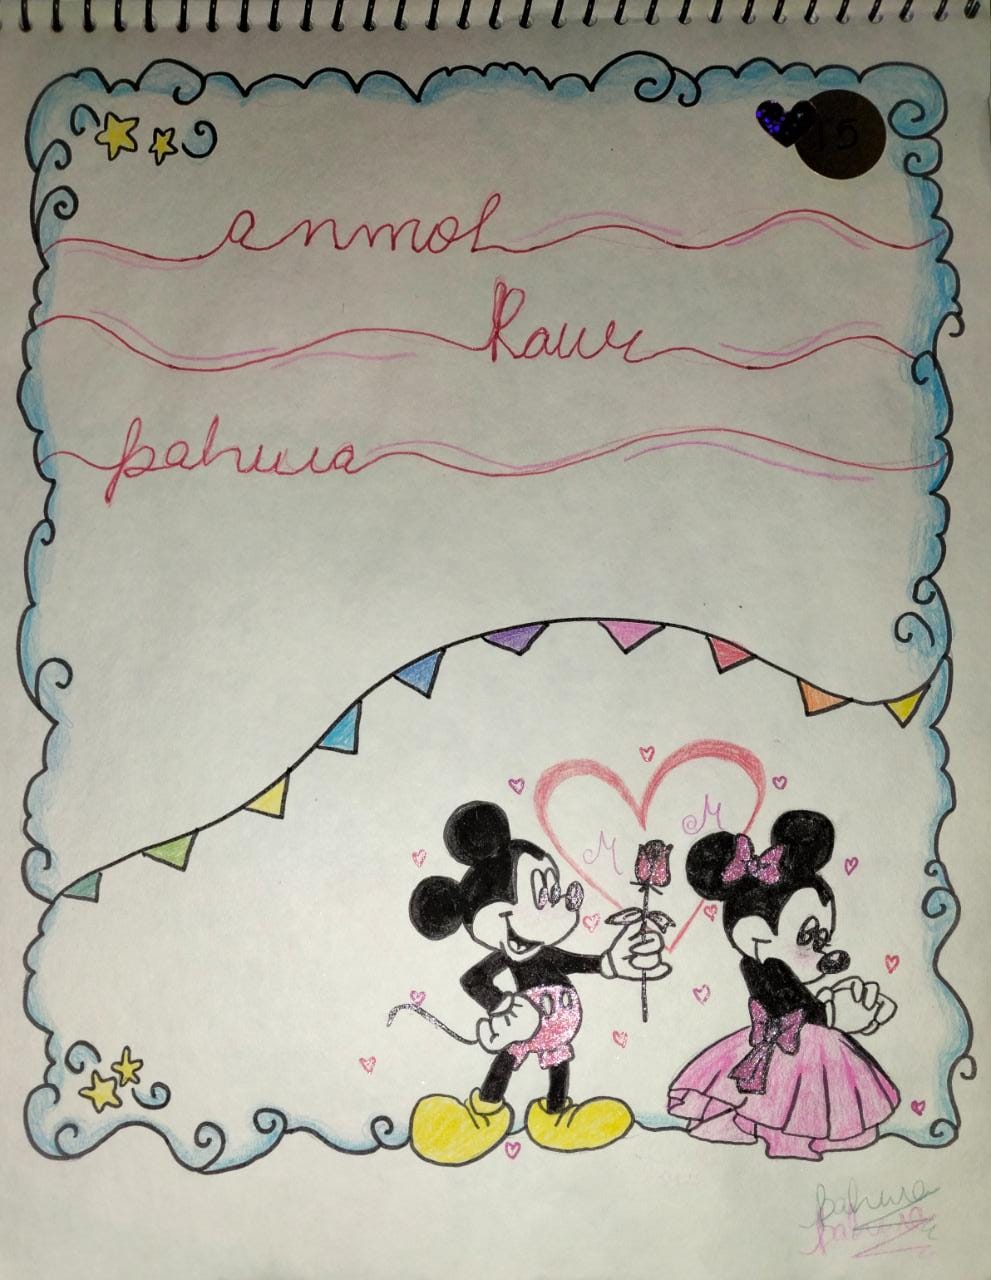 15
anmol
Kaur
pahwa
M M
pahwa
pahwa